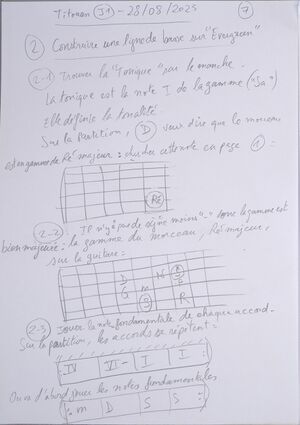 Titouan (J1) - 28/08/2025 (7)
(2) Construire une ligne de basse sur "Evergreen"
2-1 Trouver la "Tonique" sur le manche.
La tonique est la note I de la gamme ("Sa")
Elle définie la tonalité.
Sur la partition, (D) veut dire que le morceau
est en gamme de Ré majeur : cette note en page (1) =
RÉ
2-2 Il n'y a pas de signe moins "-" donc la gamme est
bien majeure : la gamme du morceau, Ré majeur,
sur la guitare =
D N S
G m P
S R
2-3 Jouer la note fondamentale de chaque accord.
Sur la partition, les accords se répètent =
IV VI- I I
On va d'abord jouer les notes fondamentales
m D S S